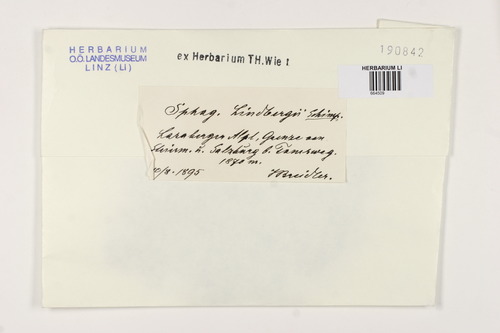 HERBARIUM
O.Ö. LANDESMUSEUM
LINZ (LI)
ex Herbarium TH. Wiet
190842
HERBARIUM LI
Sphag. Lindbergii Schimp.
Alpe, Grenze von
Steierm. u. Salzburg b. Tamsweg.
1840 m.
1895
J. Breidler.